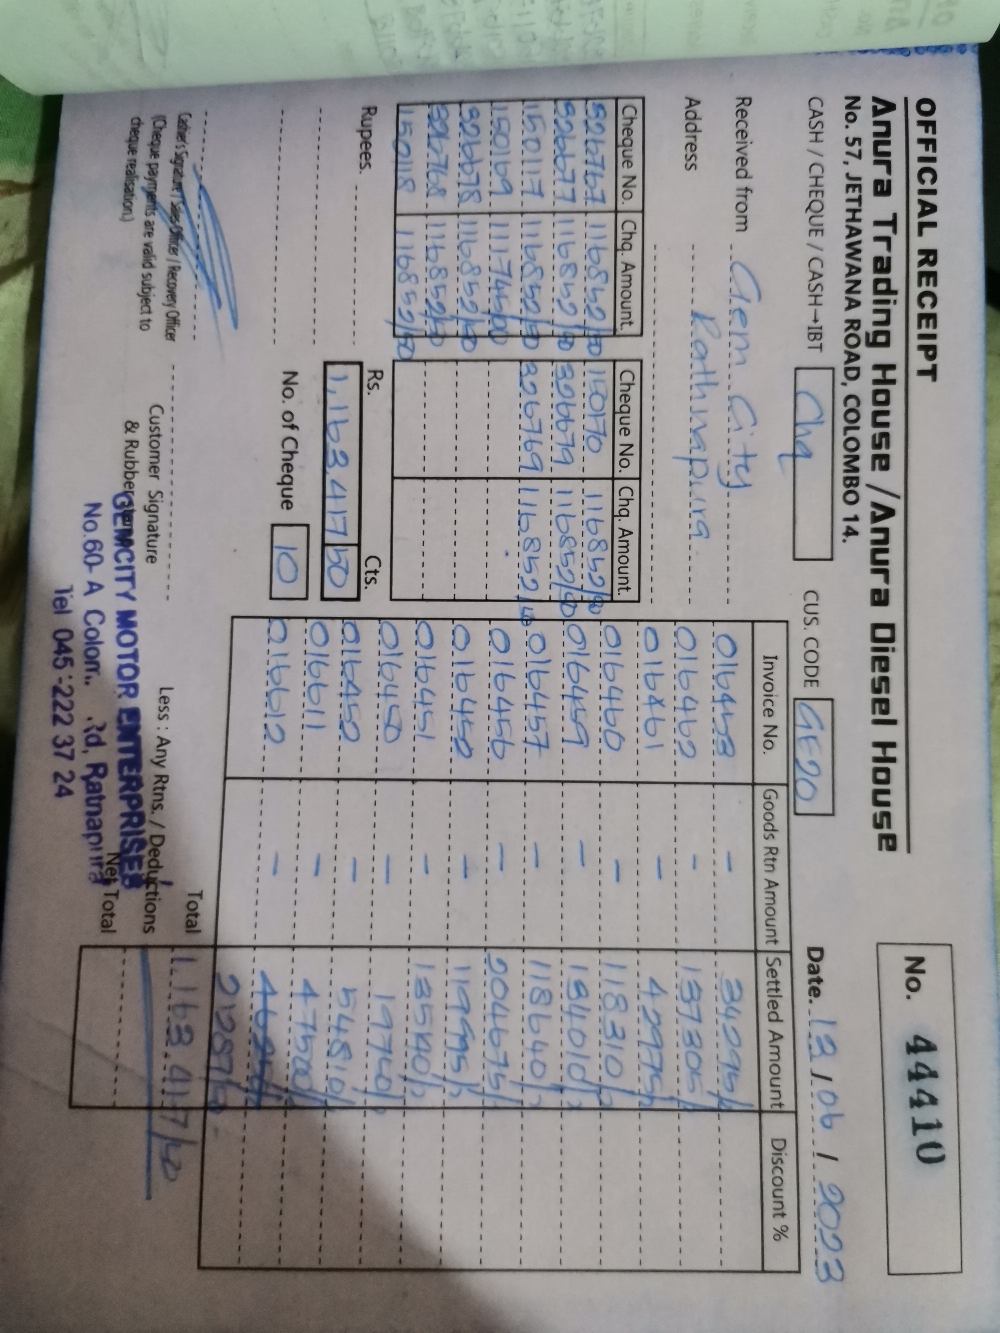 OFFICIAL RECEIPT
No. 44410
Anura Trading House / Anura Diesel House
No. 57, JETHAWANA ROAD, COLOMBO 14.
CASH / CHEQUE / CASH→IBT Chq CUS. CODE GE20 Date. 13 / 06 / 2023
Received from Gem City
Address Rathnapura
Cheque No. Chq. Amount Cheque No. Chq. Amount
326767 116852/50 150170 116852/50
326677 116852/50 326679 116852/50
150117 116852/50 326769 116852/50
150169 111745/00
326678 116852/50
326768 116852/50
150118 116852/50
Rupees.
Rs. Cts.
1,163,417 50
No. of Cheque 10
Invoice No. Goods Rtn Amount Settled Amount Discount %
016453 - 34295/-
016462 - 137305/-
016461 - 42975/-
016460 - 118310/-
016459 - 134010/-
016457 - 118640/-
016456 - 204675/-
016452 - 119995/-
016451 - 135140/-
016450 - 19750/-
016452 - 54810/-
016611 - 47500/-
016612 -
Total 1,163,417/50
Less : Any Rtns. / Deductions
Net Total
Cashier's Signature / Sales Officer / Recovery Officer
(Cheque payments are valid subject to
cheque realisation.)
Customer Signature
& Rubber
GEMCITY MOTOR ENTERPRISES
No.60- A Colom.. Rd, Ratnapura
Tel 045-222 37 24